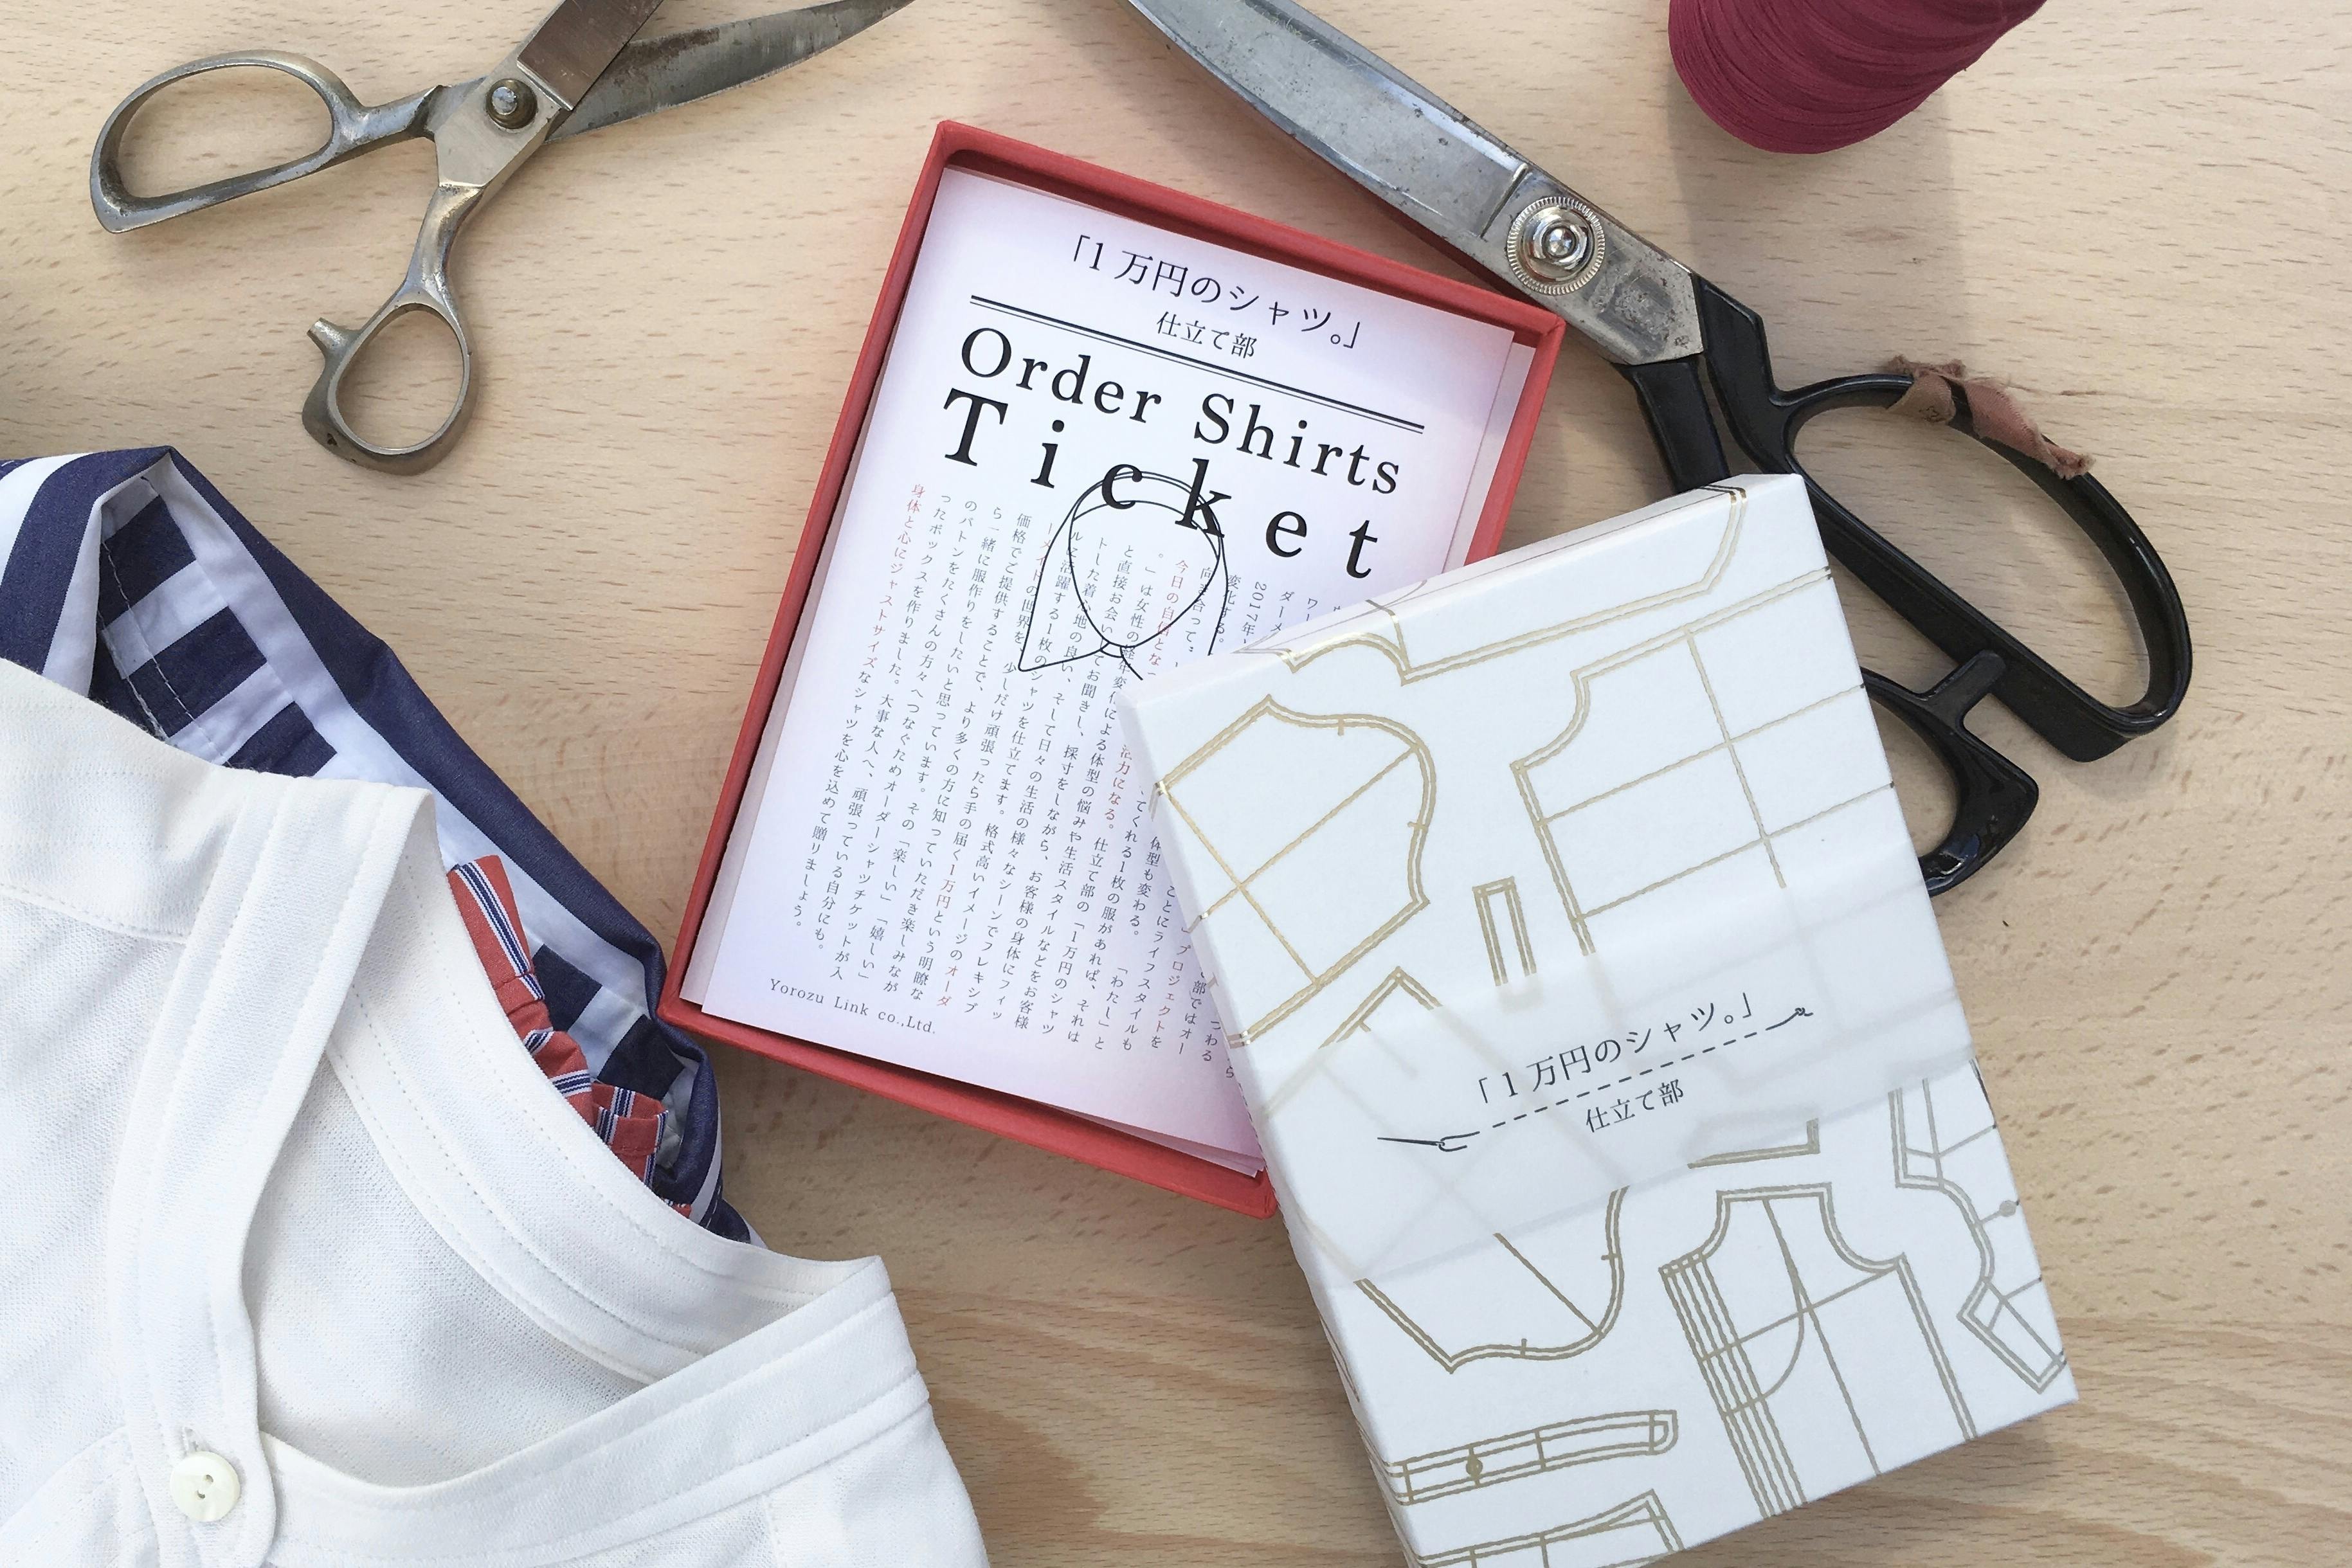 「1万円のシャツ。」
仕立て部
Order Shirts
Ticket
ワー 部ではオー
ダーメ プロジェクトを
2017年 ことにライフスタイルも
変化する。 体型も変わる。「わたし」と
向き合って てくれる1枚の服があれば、それは
今日の自信とな 活力になる。仕立て部の「1万円のシャツ
。」は女性の経年変化による体型の悩みや生活スタイルなどをお客様
と直接お会いしてお聞きし、採寸をしながら、お客様の身体にフィッ
トした着心地の良い、そして日々の生活の様々なシーンでフレキシブ
ルに活躍する1枚のシャツを仕立てます。格式高いイメージのオーダ
ーメイドの世界を、少しだけ頑張ったら手の届く1万円という明瞭な
価格でご提供することで、より多くの方に知っていただき楽しみなが
ら一緒に服作りをしたいと思っています。その「楽しい」「嬉しい」
のバトンをたくさんの方々へつなぐためオーダーシャツチケットが入
ったボックスを作りました。大事な人へ、頑張っている自分にも。
身体と心にジャストサイズなシャツを心を込めて贈りましょう。
Yorozu Link co.,Ltd.
「1万円のシャツ。」
仕立て部